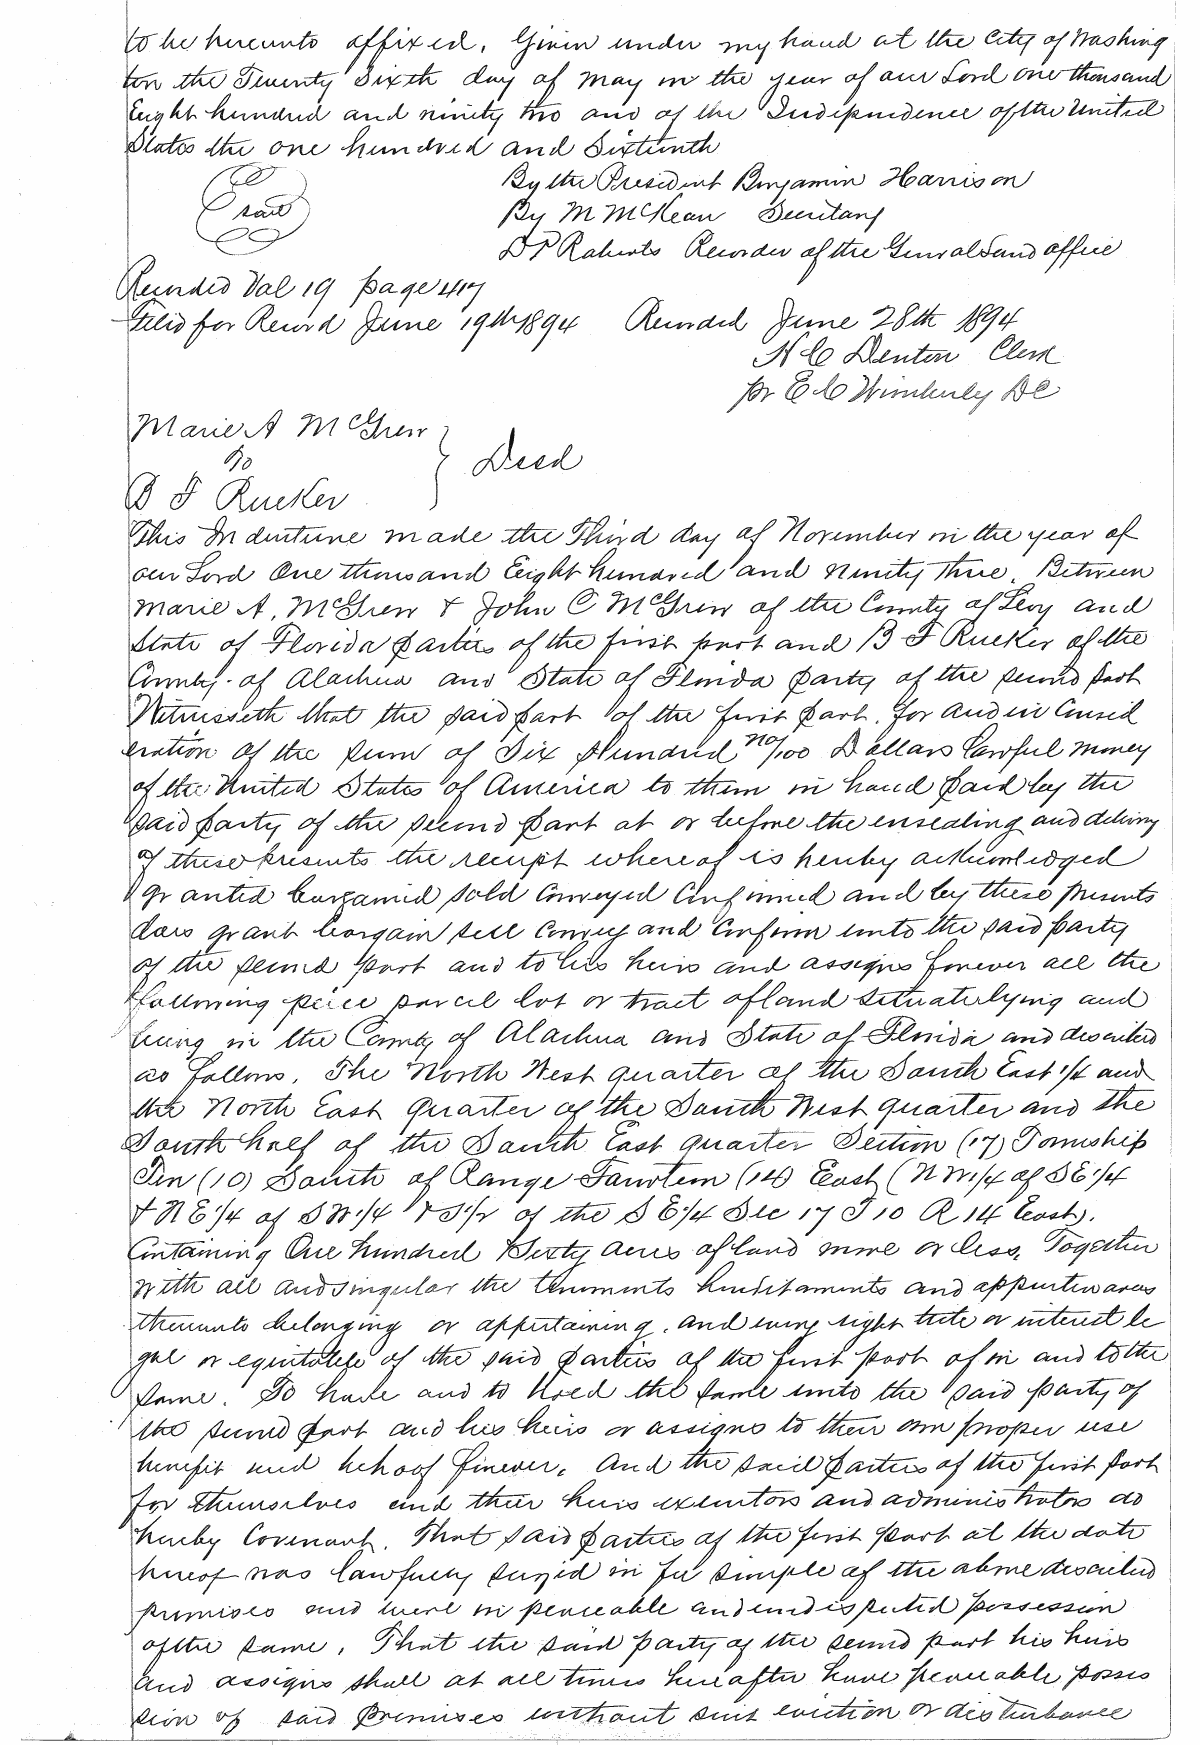 to be hereunto affixed. Given under my hand at the City of Washing
ton the Twenty Sixth day of May in the year of our Lord one thousand
Eight hundred and ninety two and of the Independence of the United
States the one hundred and Sixteenth
By the President Benjamin Harrison
Seal
By M McKean Secretary
D P Roberts Recorder of the General Land office
Recorded Vol 19 page 417
Filed for Record June 19th 1894 Recorded June 28th 1894
H C Denton Clerk
pr E C Wimberly DC
Marie A McGrew
To
Deed
B F Rucker
This Indenture made the Third day of November in the year of
our Lord One thousand Eight hundred and ninety Three. Between
Marie A. McGrew & John C McGrew of the County of Levy and
State of Florida parties of the first part and B F Rucker of the
County of Alachua and State of Florida party of the second part
Witnesseth that the said part of the first part. for and in Consid
eration of the sum of Six Hundred no/100 Dollars lawful money
of the United States of America to them in hand paid by the
said party of the second part at or before the ensealing and delivery
of these presents the receipt whereof is hereby acknowledged
granted bargained sold conveyed Confirmed and by these presents
does grant bargain sell Convey and Confirm unto the said party
of the second part and to his heirs and assigns forever all the
following peice parcel lot or tract of land situate lying and
being in the County of Alachua and State of Florida and described
as follows. The North West quarter of the South East 1/4 and
the North East Quarter of the South West quarter and the
South half of the South East quarter Section (17) Township
Ten (10) South of Range Fourteen (14) East (N W 1/4 of S E 1/4
& N E 1/4 of S W 1/4 & S 1/2 of the S E 1/4 Sec 17 T 10 R 14 East).
Containing One hundred Sixty acres of land more or less. Together
with all and singular the tenements hereditaments and appurtenances
thereunto belonging or appertaining. and every right title or interest le
gal or equitable of the said parties of the first part of in and to the
same. To have and to hold the same unto the said party of
the second part and his heirs or assigns to their own proper use
benefit and behoof forever. And the said parties of the first part
for themselves and their heirs executors and administrators do
hereby Covenant. That said parties of the first part at the date
hereof was lawfully seized in fee simple of the above described
premises and were in peaceable and undisputed possession
of the same. That the said party of the second part his heirs
and assigns shall at all times hereafter have peaceable posses
sion of said premises without suit eviction or disturbance